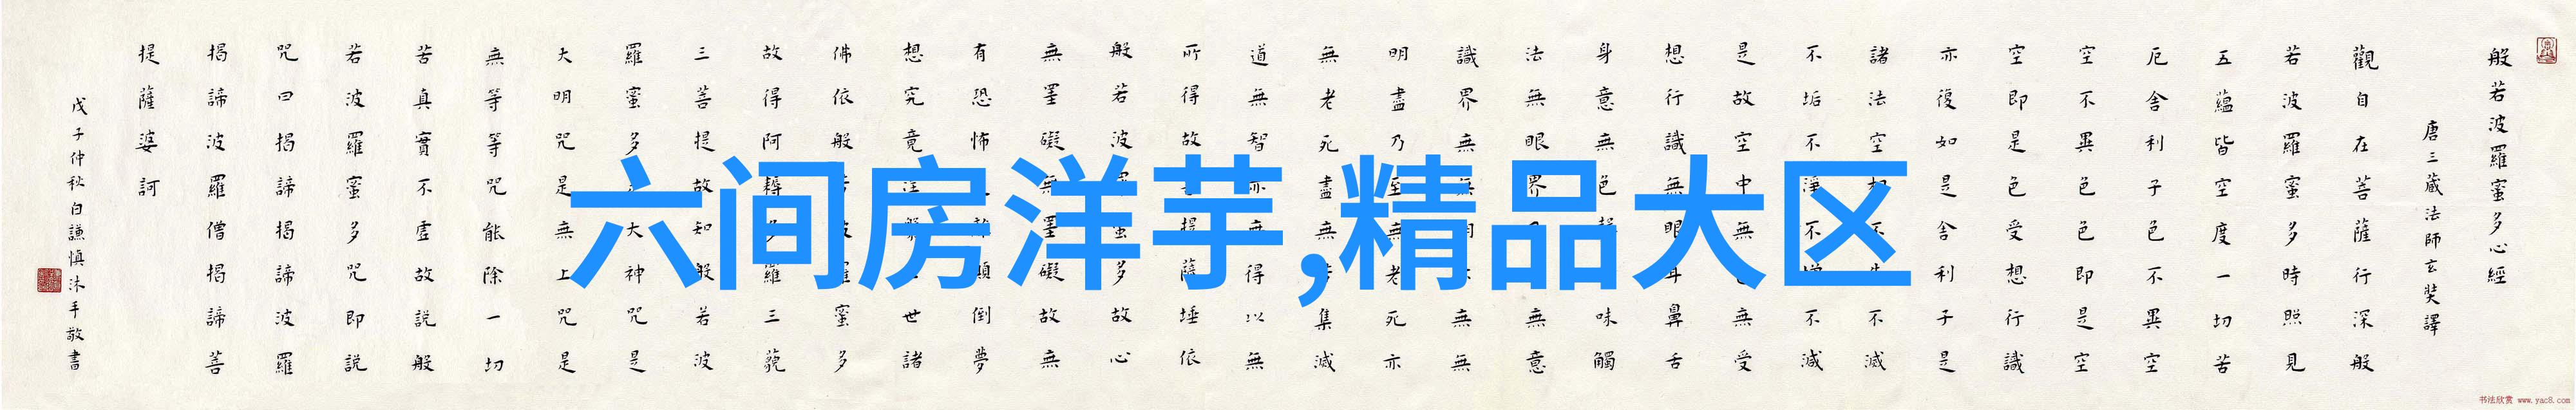 般若波羅蜜多心經
唐三藏法師玄奘譯
觀自在菩薩行深般
若波羅蜜多時照見
五蘊皆空度一切苦
厄舍利子色不異空
空不異色色即是空
空即是色受想行識
亦復如是舍利子是
諸法空相不生不滅
不垢不淨不增不減
是故空中無色無受
想行識無眼耳鼻舌
身意無色聲味觸
法無眼界無意
識界無無無無
明盡乃至無老死亦
無老死盡無苦集滅
道無智亦無得以無
所得故提薩埵依
般若波羅蜜多故心
無罣礙無罣礙故無
有恐怖離顛倒夢
想究竟涅槃世諸
佛依般若波羅蜜多
故得阿耨多羅三藐
三菩提故知般若波
羅蜜多大神咒是
大明咒是無上咒是
無等等咒能除一切
苦真實不虛故說般
若波羅蜜多咒即說
咒曰揭諦揭諦波羅
揭諦波羅僧揭諦菩
提薩婆訶
戊子仲秋白謙慎沐手敬書
六间房洋芋,精品大区
书法欣赏 www.yac8.com